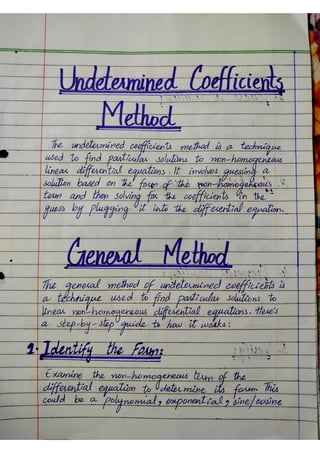 Undetermined Coefficients
Method
The undetermined coefficients method is a technique
used to find particular solutions to non-homogeneous
linear differential equations. It involves guessing a
solution based on the form of the non-homogeneous
term and then solving for the coefficients in the
guess by plugging it into the differential equation.
General Method
The general method of undetermined coefficients is
a technique used to find particular solutions to
linear non-homogeneous differential equations. Here's
a step-by-step guide to how it works:
1. Identify the Form:
Examine the non-homogeneous term of the
differential equation to determine its form. This
could be a polynomial, exponential, sine/cosine